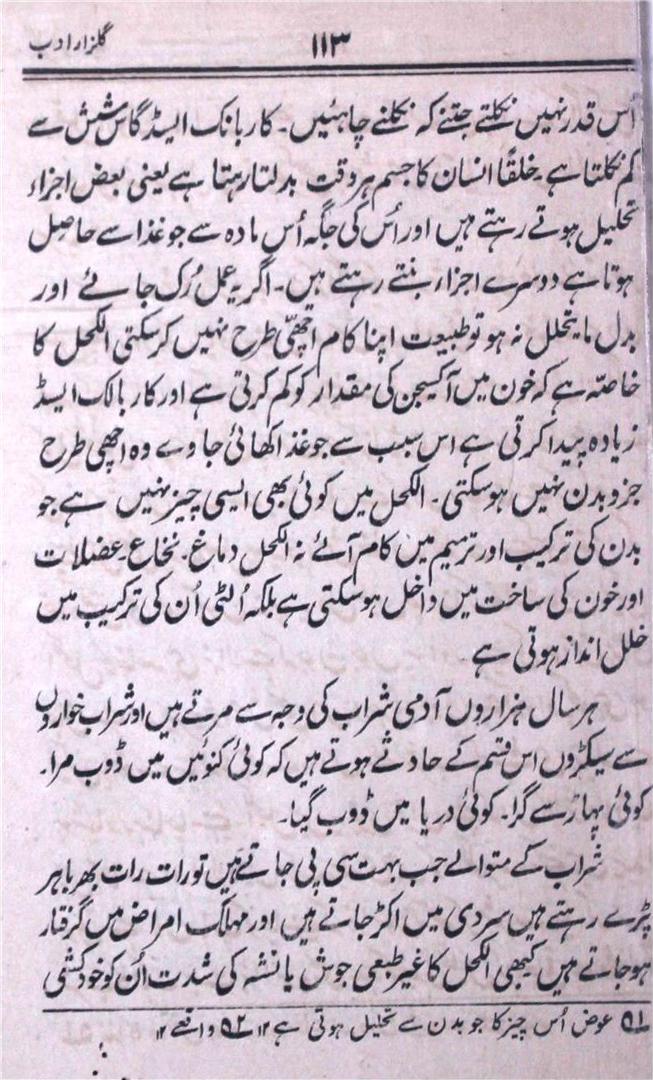 گلزار ادب
۱۱۳
اُس قدر نہیں نکلتے جتنے کہ نکلنے چاہئیں۔ کاربانک ایسڈ گاس شش سے
کم نکلتا ہے۔ خلقًا انسان کا جسم ہر وقت بدلتا رہتا ہے یعنی بعض اجزاء
تحلیل ہوتے رہتے ہیں اور اُس کی جگہ اُس مادہ سے جو غذا سے حاصل
ہوتا ہے دوسرے اجزاء بنتے رہتے ہیں۔ اگر یہ عمل رُک جائے اور
بدل ما یتحلل نہ ہو تو طبیعت اپنا کام اچھّی طرح نہیں کر سکتی الکحل کا
خاصّہ ہے کہ خون میں آکسیجن کی مقدار کو کم کرتی ہے اور کاربالک ایسڈ
زیادہ پیدا کرتی ہے اس سبب سے جو غذا کھائی جاوے وہ اچھی طرح
جزو بدن نہیں ہو سکتی۔ الکحل میں کوئی بھی ایسی چیز نہیں ہے جو
بدن کی ترکیب اور ترمیم میں کام آئے نہ الکحل دماغ۔ نخاع۔ عضلات
اور خون کی ساخت میں داخل ہو سکتی ہے بلکہ اُلٹی اُن کی ترکیب میں
خلل انداز ہوتی ہے۔
ہر سال ہزاروں آدمی شراب کی وجہ سے مرتے ہیں اور شراب خواروں
سے سیکڑوں اس قسم کے حادثے ہوتے ہیں کہ کوئی کنوئیں میں ڈوب مرا۔
کوئی پہاڑ سے گرا۔ کوئی دریا میں ڈوب گیا۔
شراب کے متوالے جب بہت سی پی جاتے ہیں تو رات رات بھر باہر
پڑے رہتے ہیں سردی میں اکڑ جاتے ہیں اور مہلک امراض میں گرفتار
ہو جاتے ہیں کبھی الکحل کا غیر طبعی جوش یا نشہ کی شدت اُن کو خودکشی
۱؎ عوض اُس چیز کا جو بدن سے تحلیل ہوتی ہے ۱۲ ۲؎ واقعے ۱۲